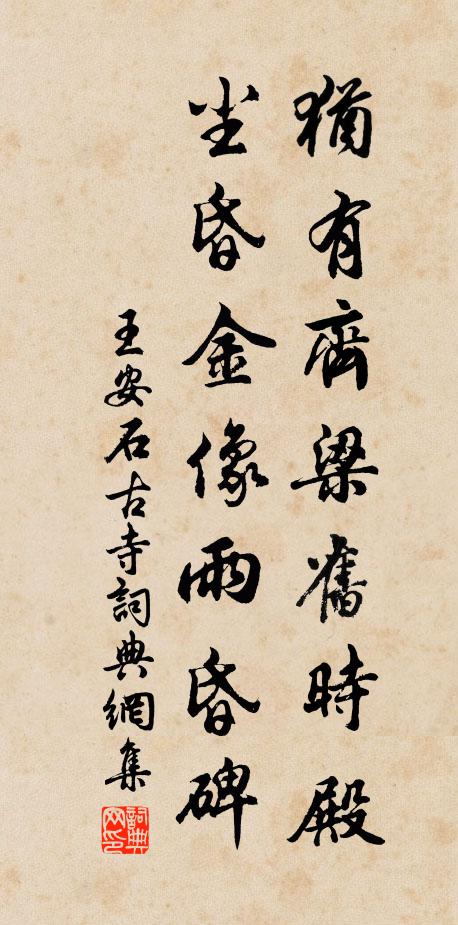 猶有齊梁舊時殿
尘昏金像雨昏碑
王安石古寺詞典網集
詞典网印